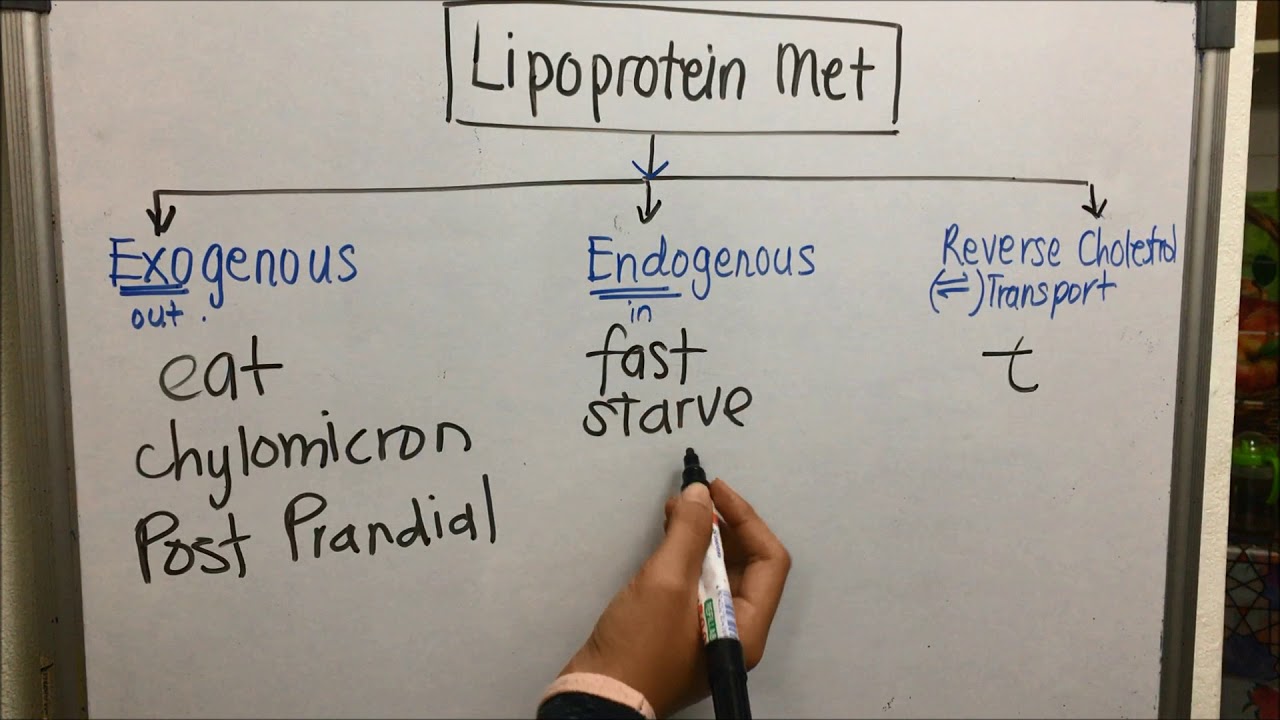 Lipoprotein Met
Exogenous
out .
eat
chylomicron
Post Prandial
Endogenous
in
fast
starve
Reverse Cholestrol
(⇌) Transport
t